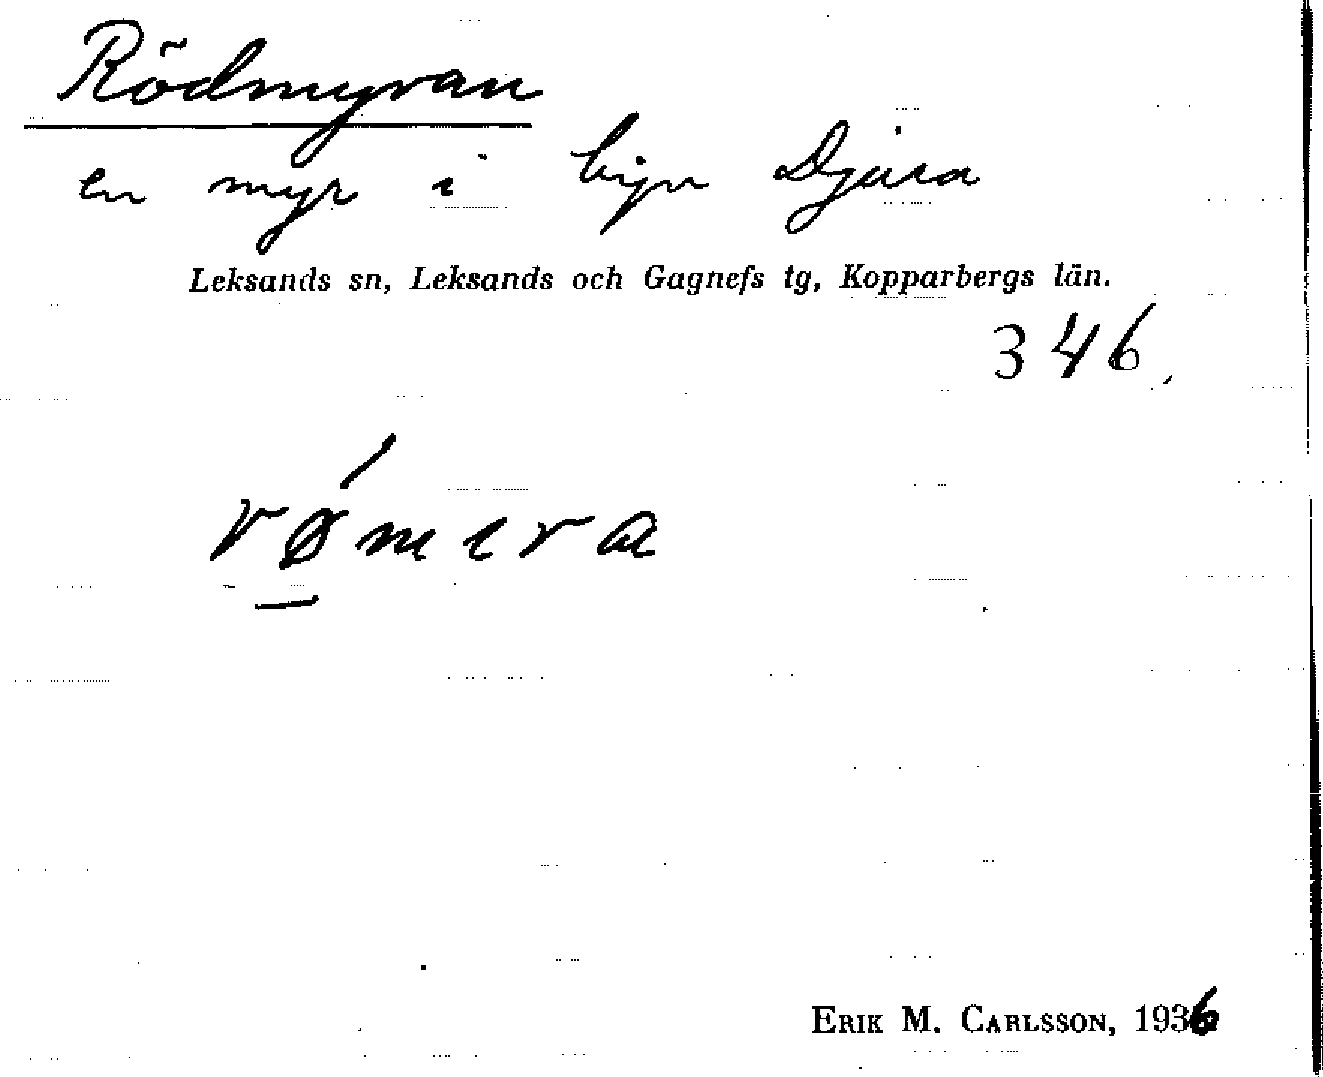 Rödmyran
en myr i byn Djura
Leksands sn, Leksands och Gagnefs tg, Kopparbergs län.
346.
rǿ̲mıra
ERIK M. CARLSSON, 1936